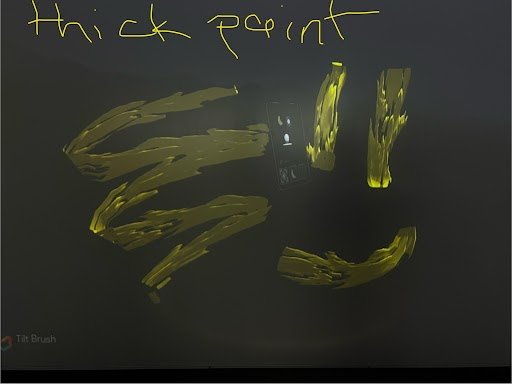 thick paint
Tilt Brush